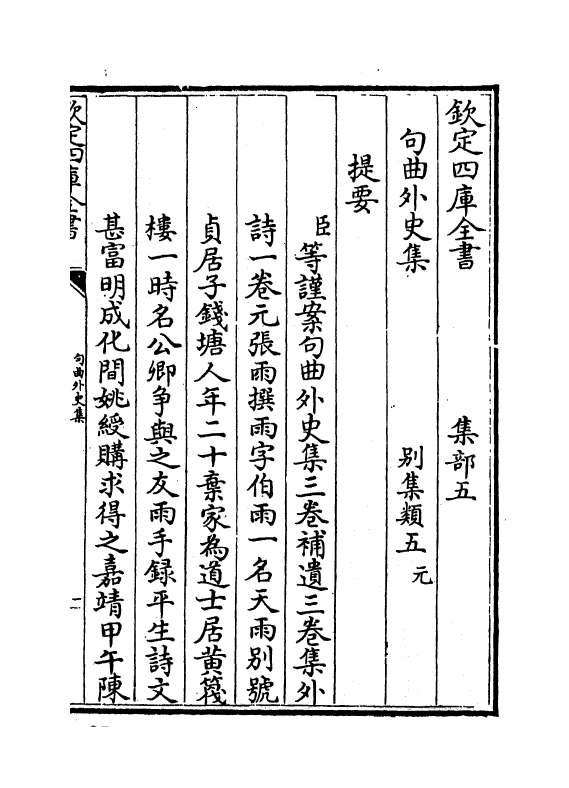 欽定四庫全書　集部五
句曲外史集　別集類五元
提要
臣等謹案句曲外史集三卷補遺三卷集外
詩一卷元張雨撰雨字伯雨一名天雨別號
貞居子錢塘人年二十棄家為道士居黃篾
樓一時名公卿争與之友雨手録平生詩文
甚富明成化間姚綬購求得之嘉靖甲午陳
欽定四庫全書
句曲外史集
一